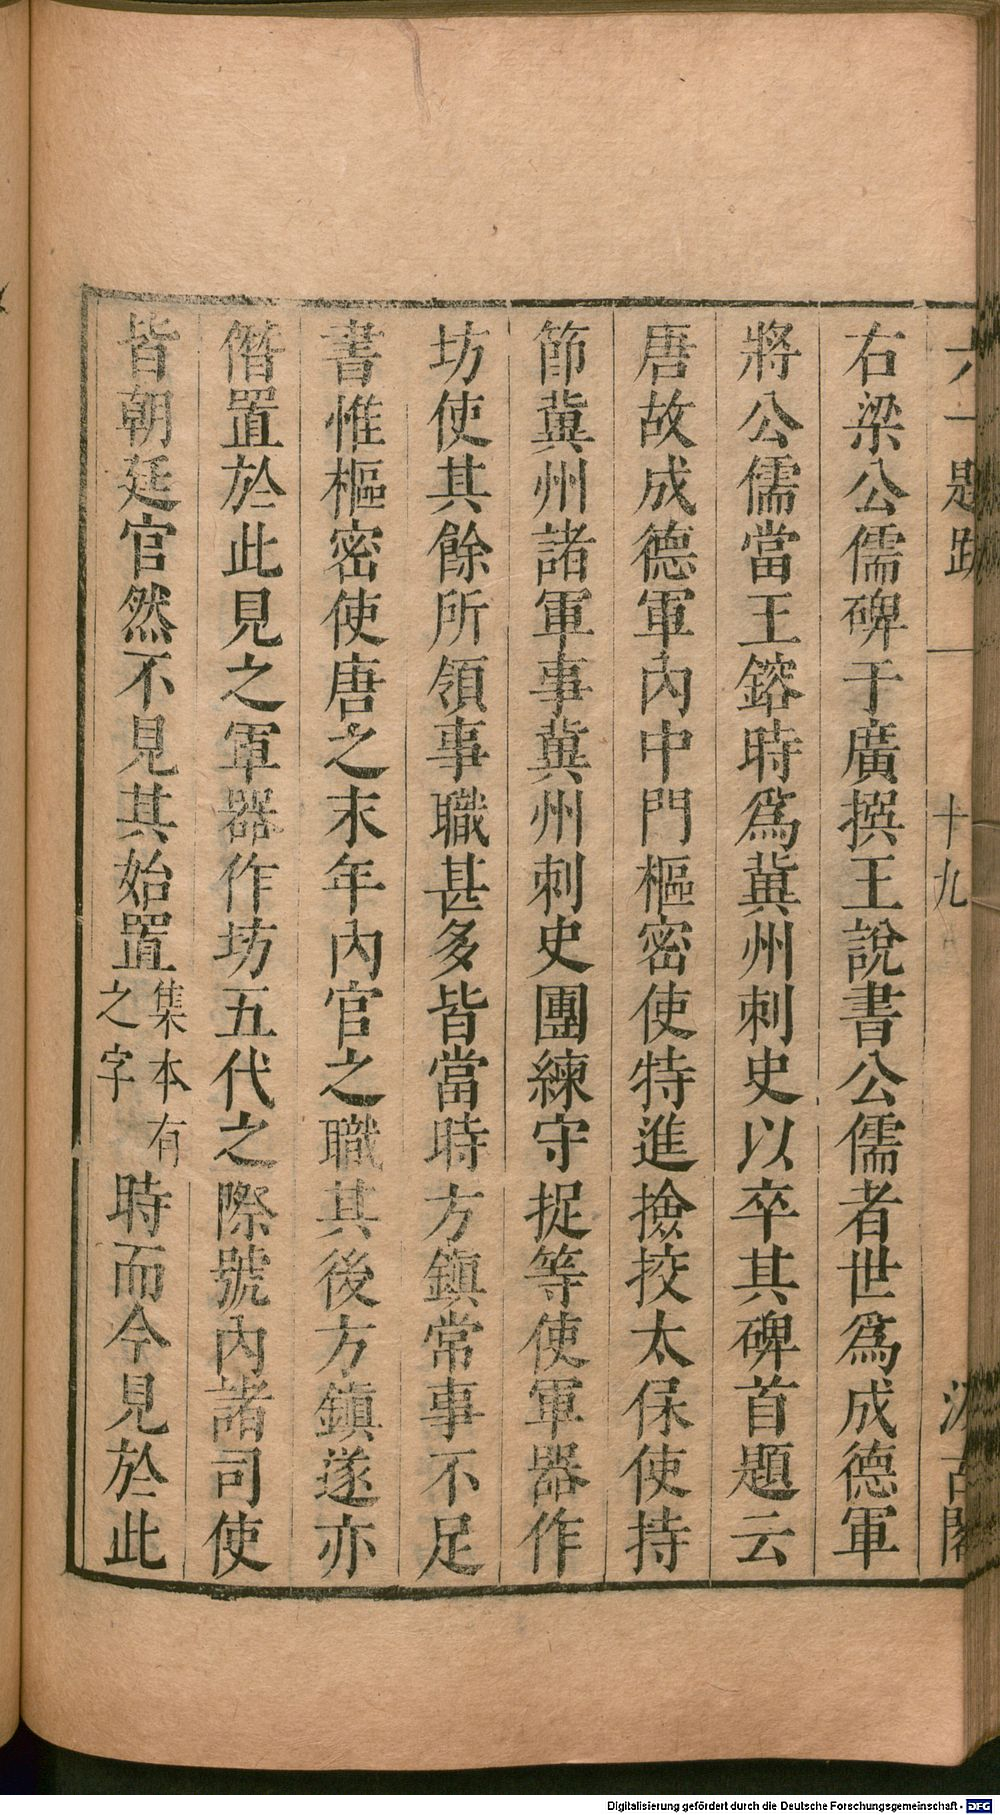 六一題跋 十九 汲古閣
右梁公儒碑于廣撰王說書公儒者世爲成德軍
將公儒當王鎔時爲冀州刺史以卒其碑首題云
唐故成德軍內中門樞密使特進撿挍太保使持
節冀州諸軍事冀州刺史團練守捉等使軍器作
坊使其餘所領事職甚多皆當時方鎮常事不足
書惟樞密使唐之末年內官之職其後方鎮遂亦
僭置於此見之軍器作坊五代之際號內諸司使
皆朝廷官然不見其始置集本有之字時而今見於此
Digitalisierung gefördert durch die Deutsche Forschungsgemeinschaft - DFG